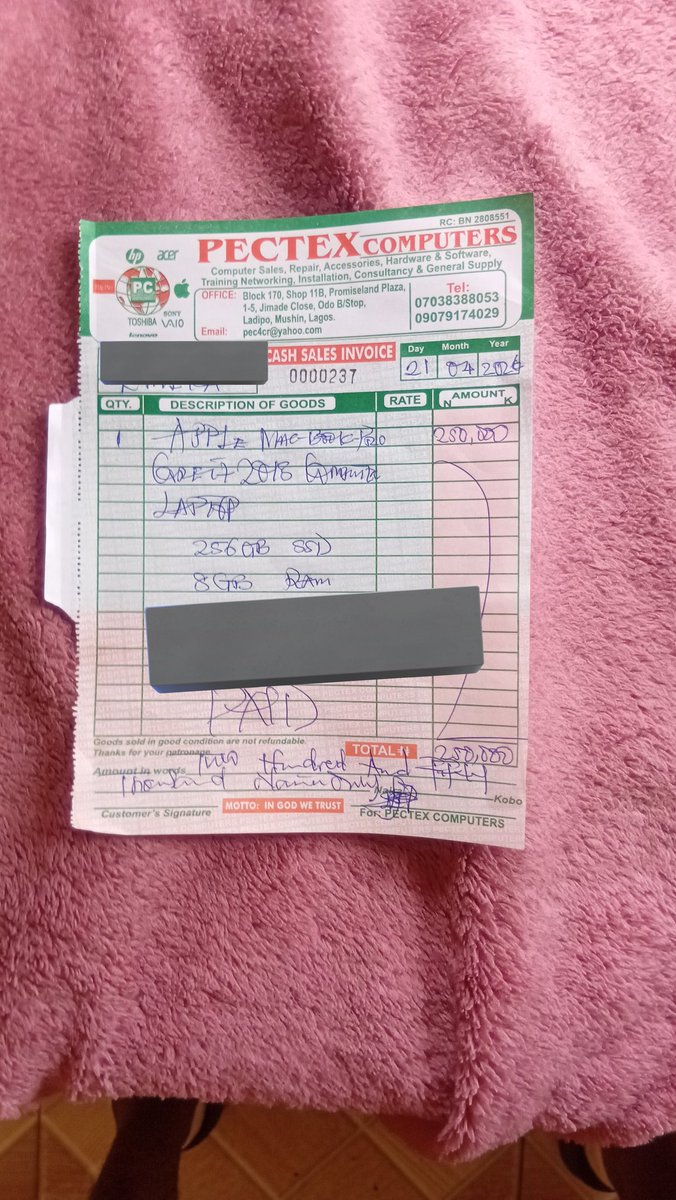 RC: BN 2808551
PECTEX COMPUTERS
Computer Sales, Repair, Accessories, Hardware & Software,
Training Networking, Installation, Consultancy & General Supply
hp acer
PC
TOSHIBA SONY VAIO
lenovo
OFFICE: Block 170, Shop 11B, Promiseland Plaza,
1-5, Jimade Close, Odo B/Stop,
Ladipo, Mushin, Lagos.
Email: pec4cr@yahoo.com
Tel:
07038388053
09079174029
CASH SALES INVOICE
0000237
Day Month Year
21 04
QTY. DESCRIPTION OF GOODS RATE AMOUNT
N K
1 APPLE MACBOOK PRO 250,000
2018
LAPTOP
256GB SSD
8GB RAM
PAID
Goods sold in good condition are not refundable.
Thanks for your patronage
TOTAL N 250,000
Amount in words Two Hundred And Fifty
Thousand Naira Only
Kobo
Customer's Signature
MOTTO: IN GOD WE TRUST
For: PECTEX COMPUTERS